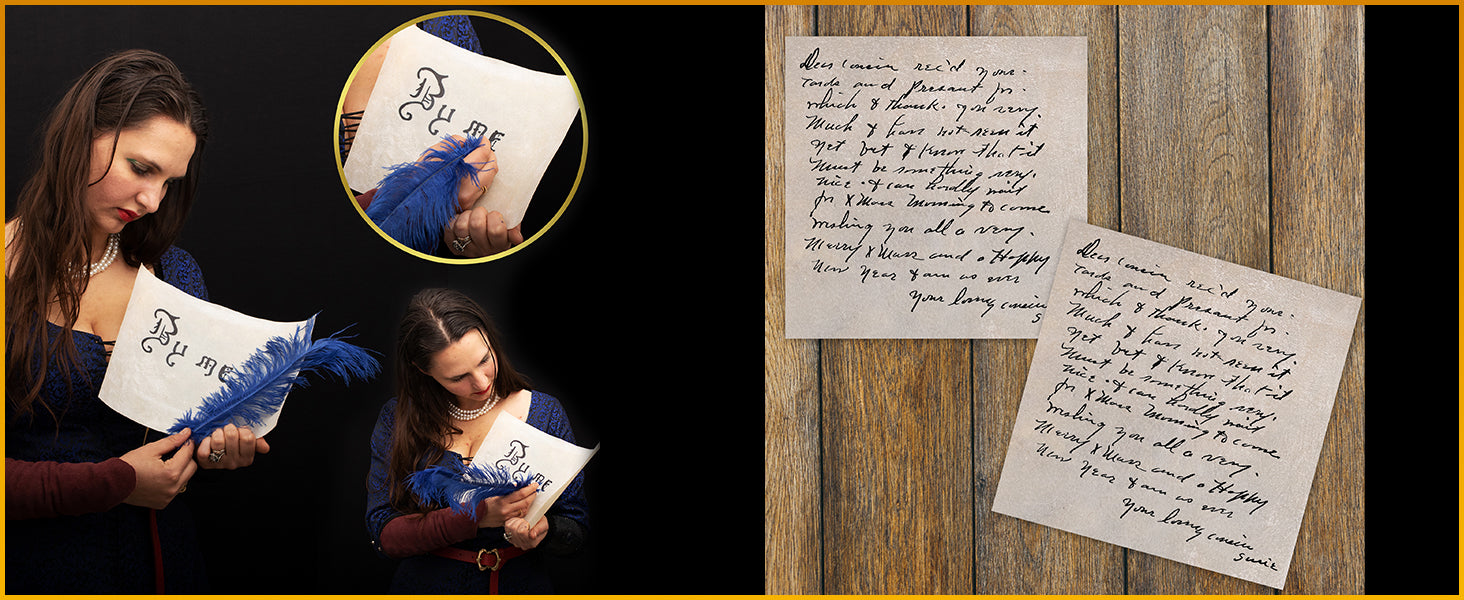 By me
By me
By me
Dear Cousin rec'd your
Cards and Present for
which I thank you very
Much I have not seen it
yet but I know that it
Must be something very
nice I can hardly wait
for X Mass Morning to come
wishing you all a very
Merry X Mass and a Happy
New Year I am as ever
your loving cousin
S
Dear Cousin rec'd your
Cards and Present for
which I thank you very
Much I have not seen it
yet but I know that it
Must be something very
nice I can hardly wait
for X Mass Morning to come
wishing you all a very
Merry X Mass and a Happy
New Year I am as ever
your loving cousin
Susie